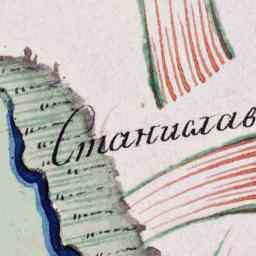 Станислав